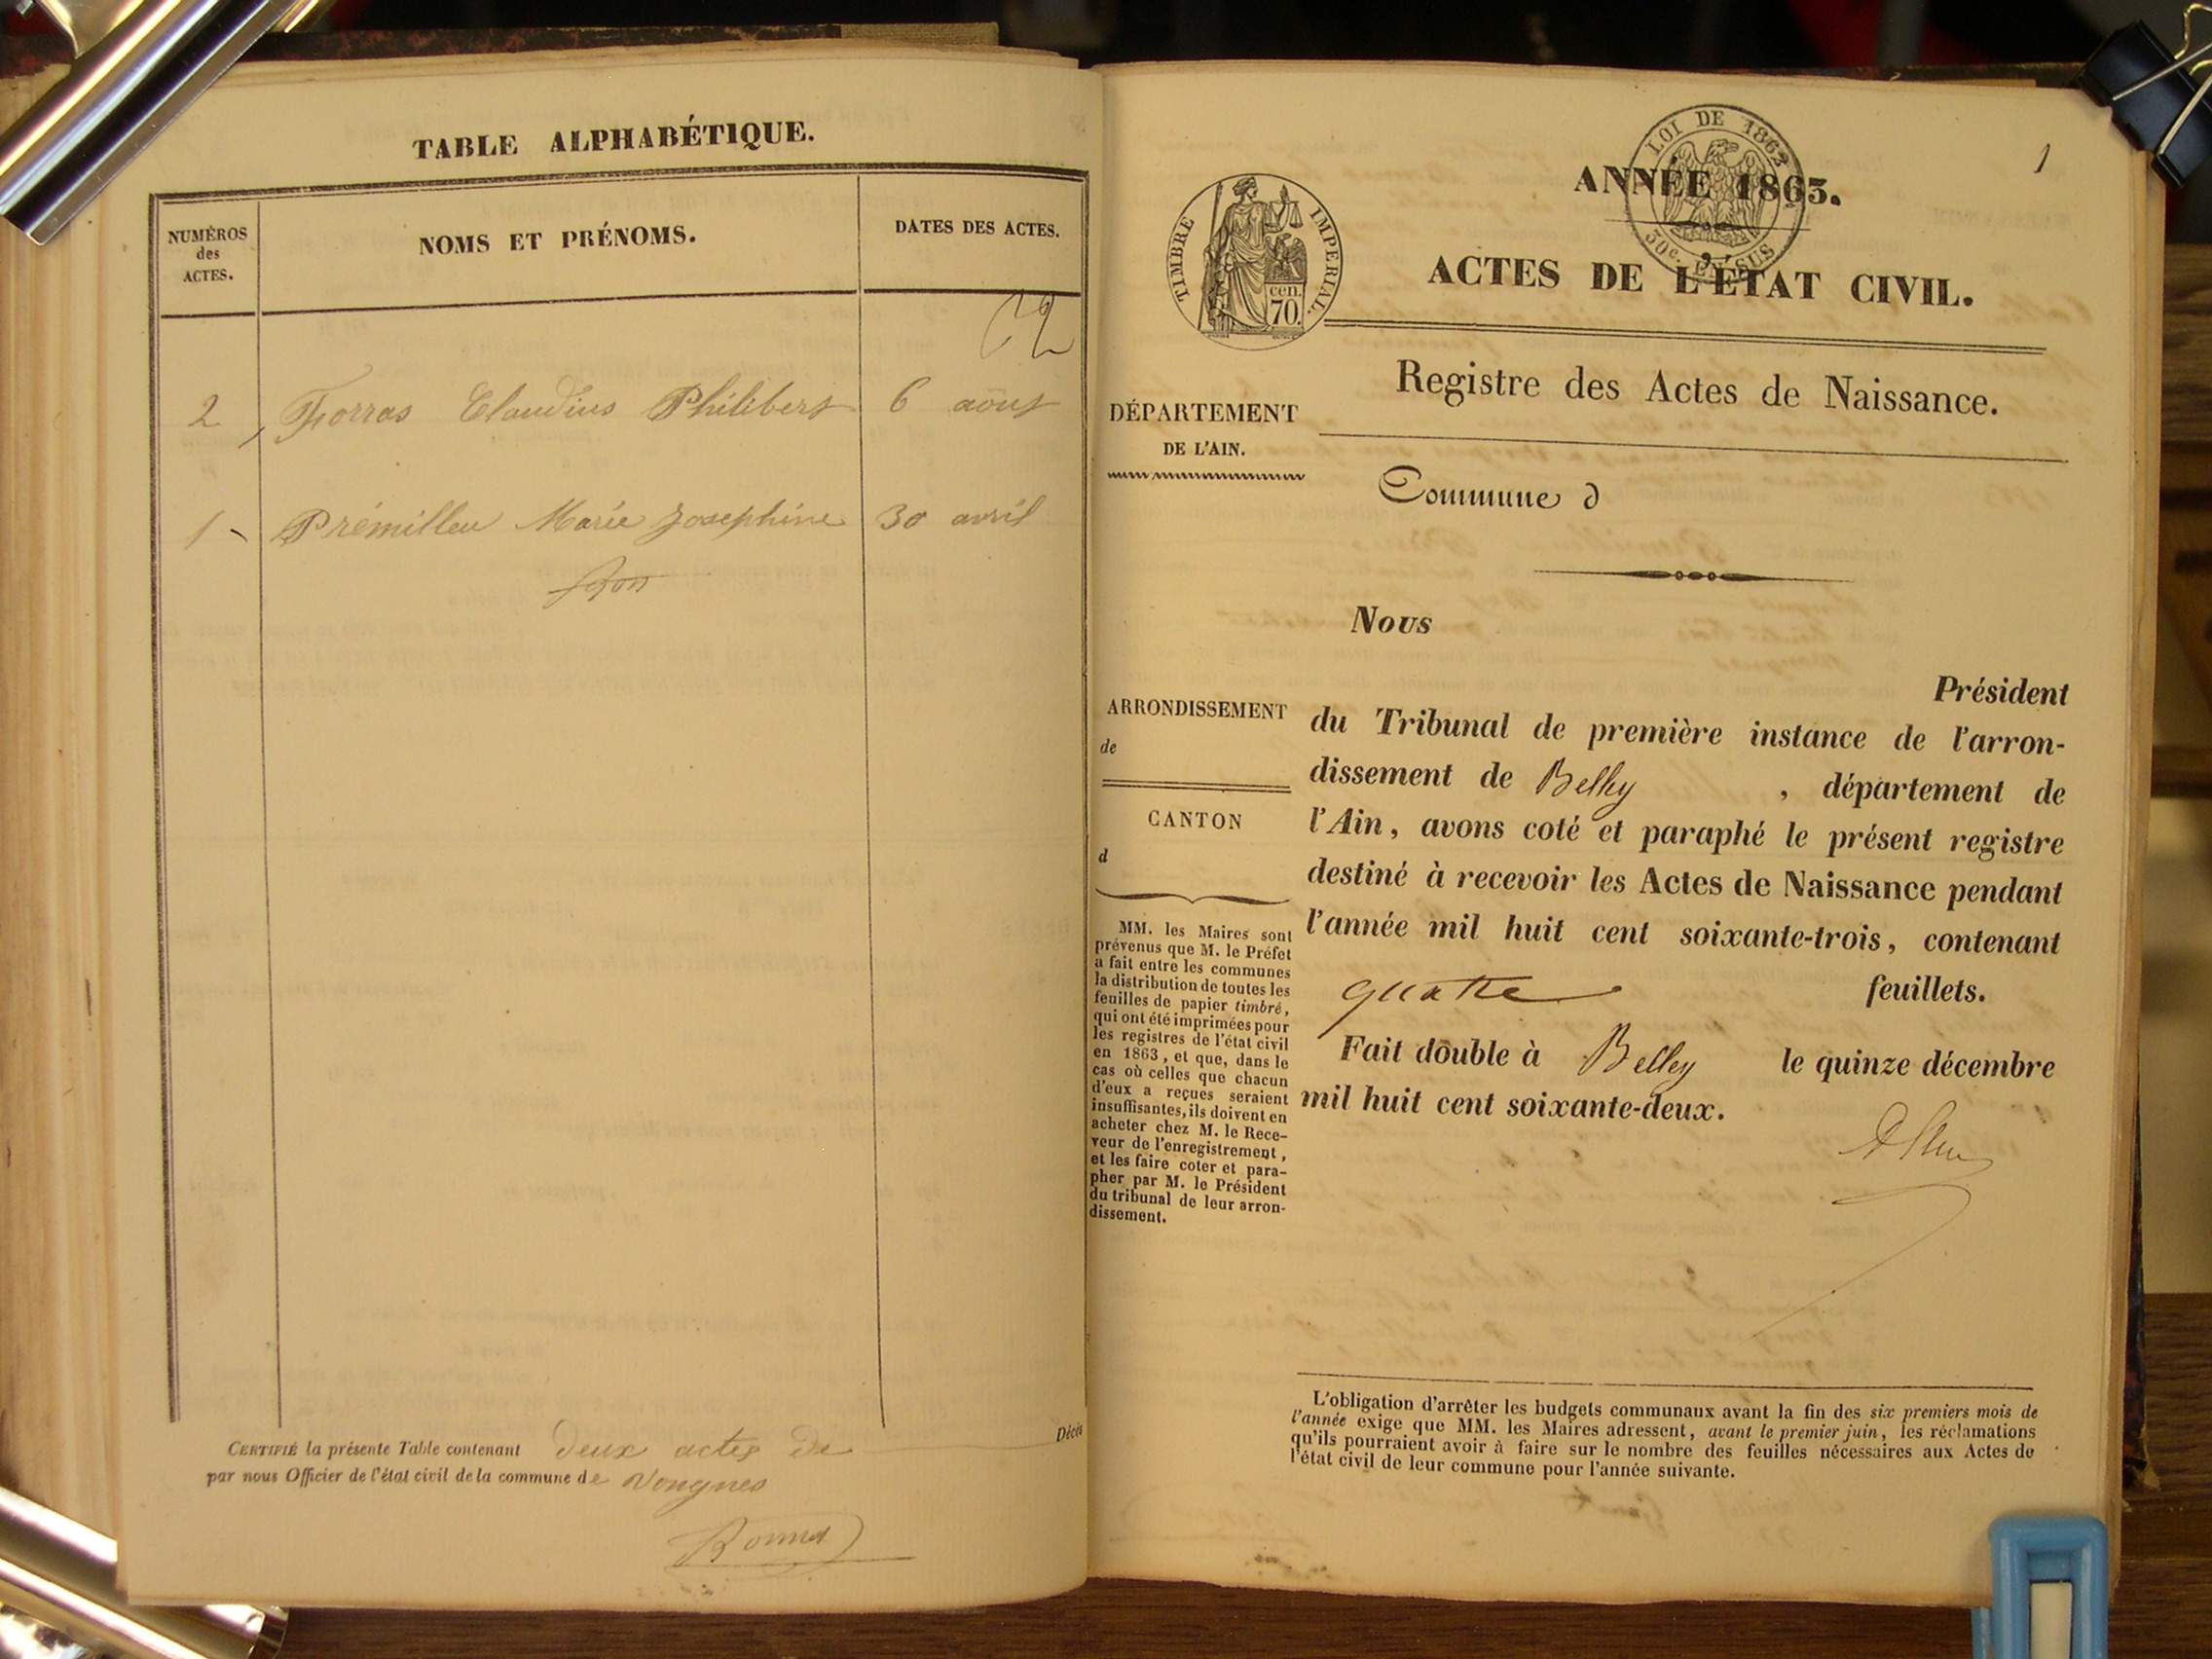 TABLE ALPHABÉTIQUE.
NUMÉROS
des
ACTES.
NOMS ET PRÉNOMS.
DATES DES ACTES.
2 Forras Claudius Philibert 6 août
1 Prémilleu Marie Josephine 30 avril
CERTIFIÉ la présente Table contenant deux actes de Décès
par nous Officier de l'état civil de la commune de Vongnes
Bonnet
1
LOI DE 1862
50c. EN SUS
TIMBRE IMPERIAL
cen.
70.
ANNÉE 1863.
ACTES DE L'ÉTAT CIVIL.
Registre des Actes de Naissance.
DÉPARTEMENT
DE L'AIN.
Commune d
Nous
Président
ARRONDISSEMENT
de
CANTON
d
du Tribunal de première instance de l'arron-
dissement de Belley , département de
l'Ain, avons coté et paraphé le présent registre
destiné à recevoir les Actes de Naissance pendant
l'année mil huit cent soixante-trois, contenant
quatre feuillets.
Fait double à Belley le quinze décembre
mil huit cent soixante-deux.
MM. les Maires sont
prévenus que M. le Préfet
a fait entre les communes
la distribution de toutes les
feuilles de papier timbré,
qui ont été imprimées pour
les registres de l'état civil
en 1863, et que, dans le
cas où celles que chacun
d'eux a reçues seraient
insuffisantes, ils doivent en
acheter chez M. le Rece-
veur de l'enregistrement,
et les faire coter et para-
pher par M. le Président
du tribunal de leur arron-
dissement.
L'obligation d'arrêter les budgets communaux avant la fin des six premiers mois de
l'année exige que MM. les Maires adressent, avant le premier juin, les réclamations
qu'ils pourraient avoir à faire sur le nombre des feuilles nécessaires aux Actes de
l'état civil de leur commune pour l'année suivante.